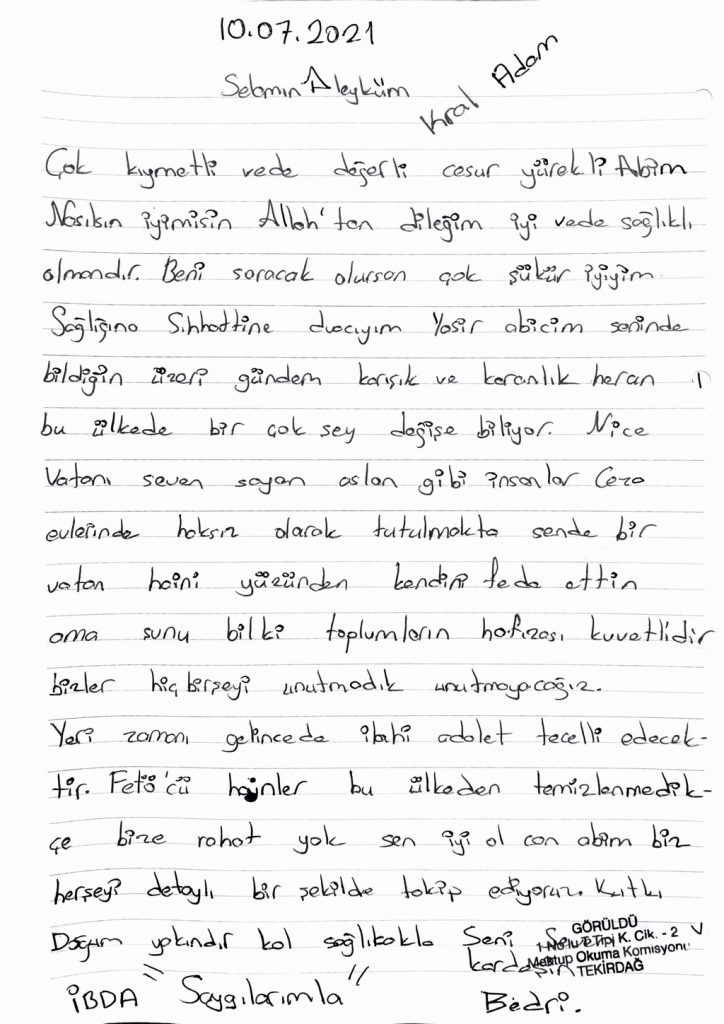 10.07.2021
Selamın Aleyküm
Kıral Adam
Çok kıymetli vede değerli cesur yürekli Abim
Nasılsın iyimisin Allah'tan dileğim iyi vede sağlıklı
olmandır. Beni soracak olursan çok şükür iyiyim
Sağlığına Sıhhattine duacıyım Yasir abicim seninde
bildiğin üzeri gündem karışık ve karanlık heran
bu ülkede bir çok sey değişe biliyor. Nice
Vatanı seven sayan aslan gibi insanlar Ceza
evlerinde haksız olarak tutulmakta sende bir
vatan haini yüzünden kendini feda ettin
ama sunu bilki toplumların hafızası kuvetlidir
bizler hiç birşeyi unutmadık unutmayacağız.
Yeri zamanı gelincede ilahi adalet tecelli edecek-
tir. Fetö'cü hainler bu ülkeden temizlenmedik-
çe bize rahat yok sen iyi ol can abim biz
herşeyi detaylı bir şekilde takip ediyoruz. Kutlu
Doğum yakındır kal sağlıkokla Seni
kardeşin
GÖRÜLDÜ
1 Nolu F Tipi K. Cik. - 2
Mektup Okuma Komisyonu
TEKİRDAĞ
İBDA "Saygılarımla" Bedri.